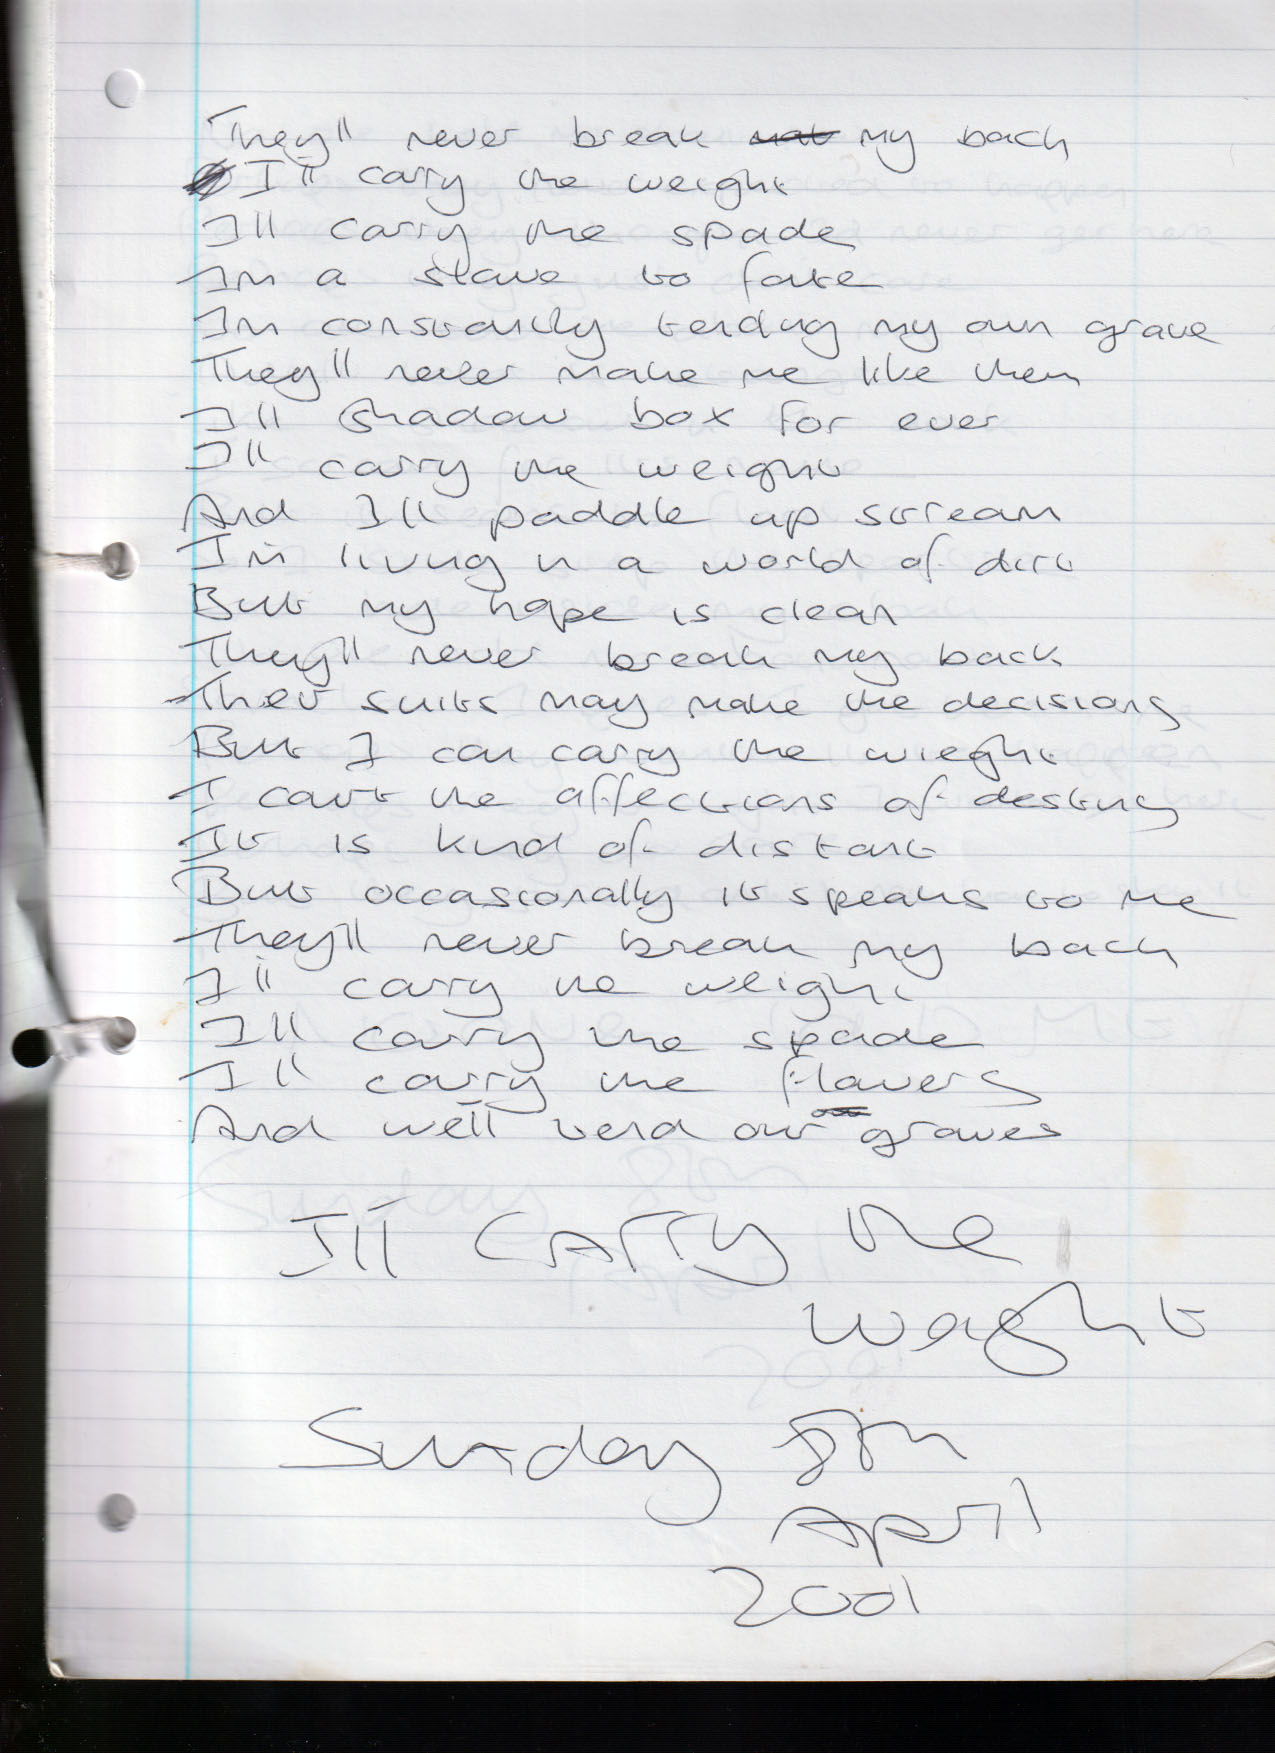 They'll never break my back
I'll carry the weight
I'll carry the spade
Im a slave to fate
Im constantly tending my own grave
They'll never make me like them
I'll shadow box for ever
I'll carry the weight
And I'll paddle up stream
I'm living in a world of dirt
But my hope is clean
They'll never break my back
Their suits may make the decisions
But I can carry the wieght
I cant the affections of destiny
It is kind of distant
But occasionally it speaks to me
They'll never break my back
I'll carry the weight
I'll carry the spade
I'll carry the flowers
And we'll tend our graves
I'll carry the
weight
Sunday 8th
April
2001